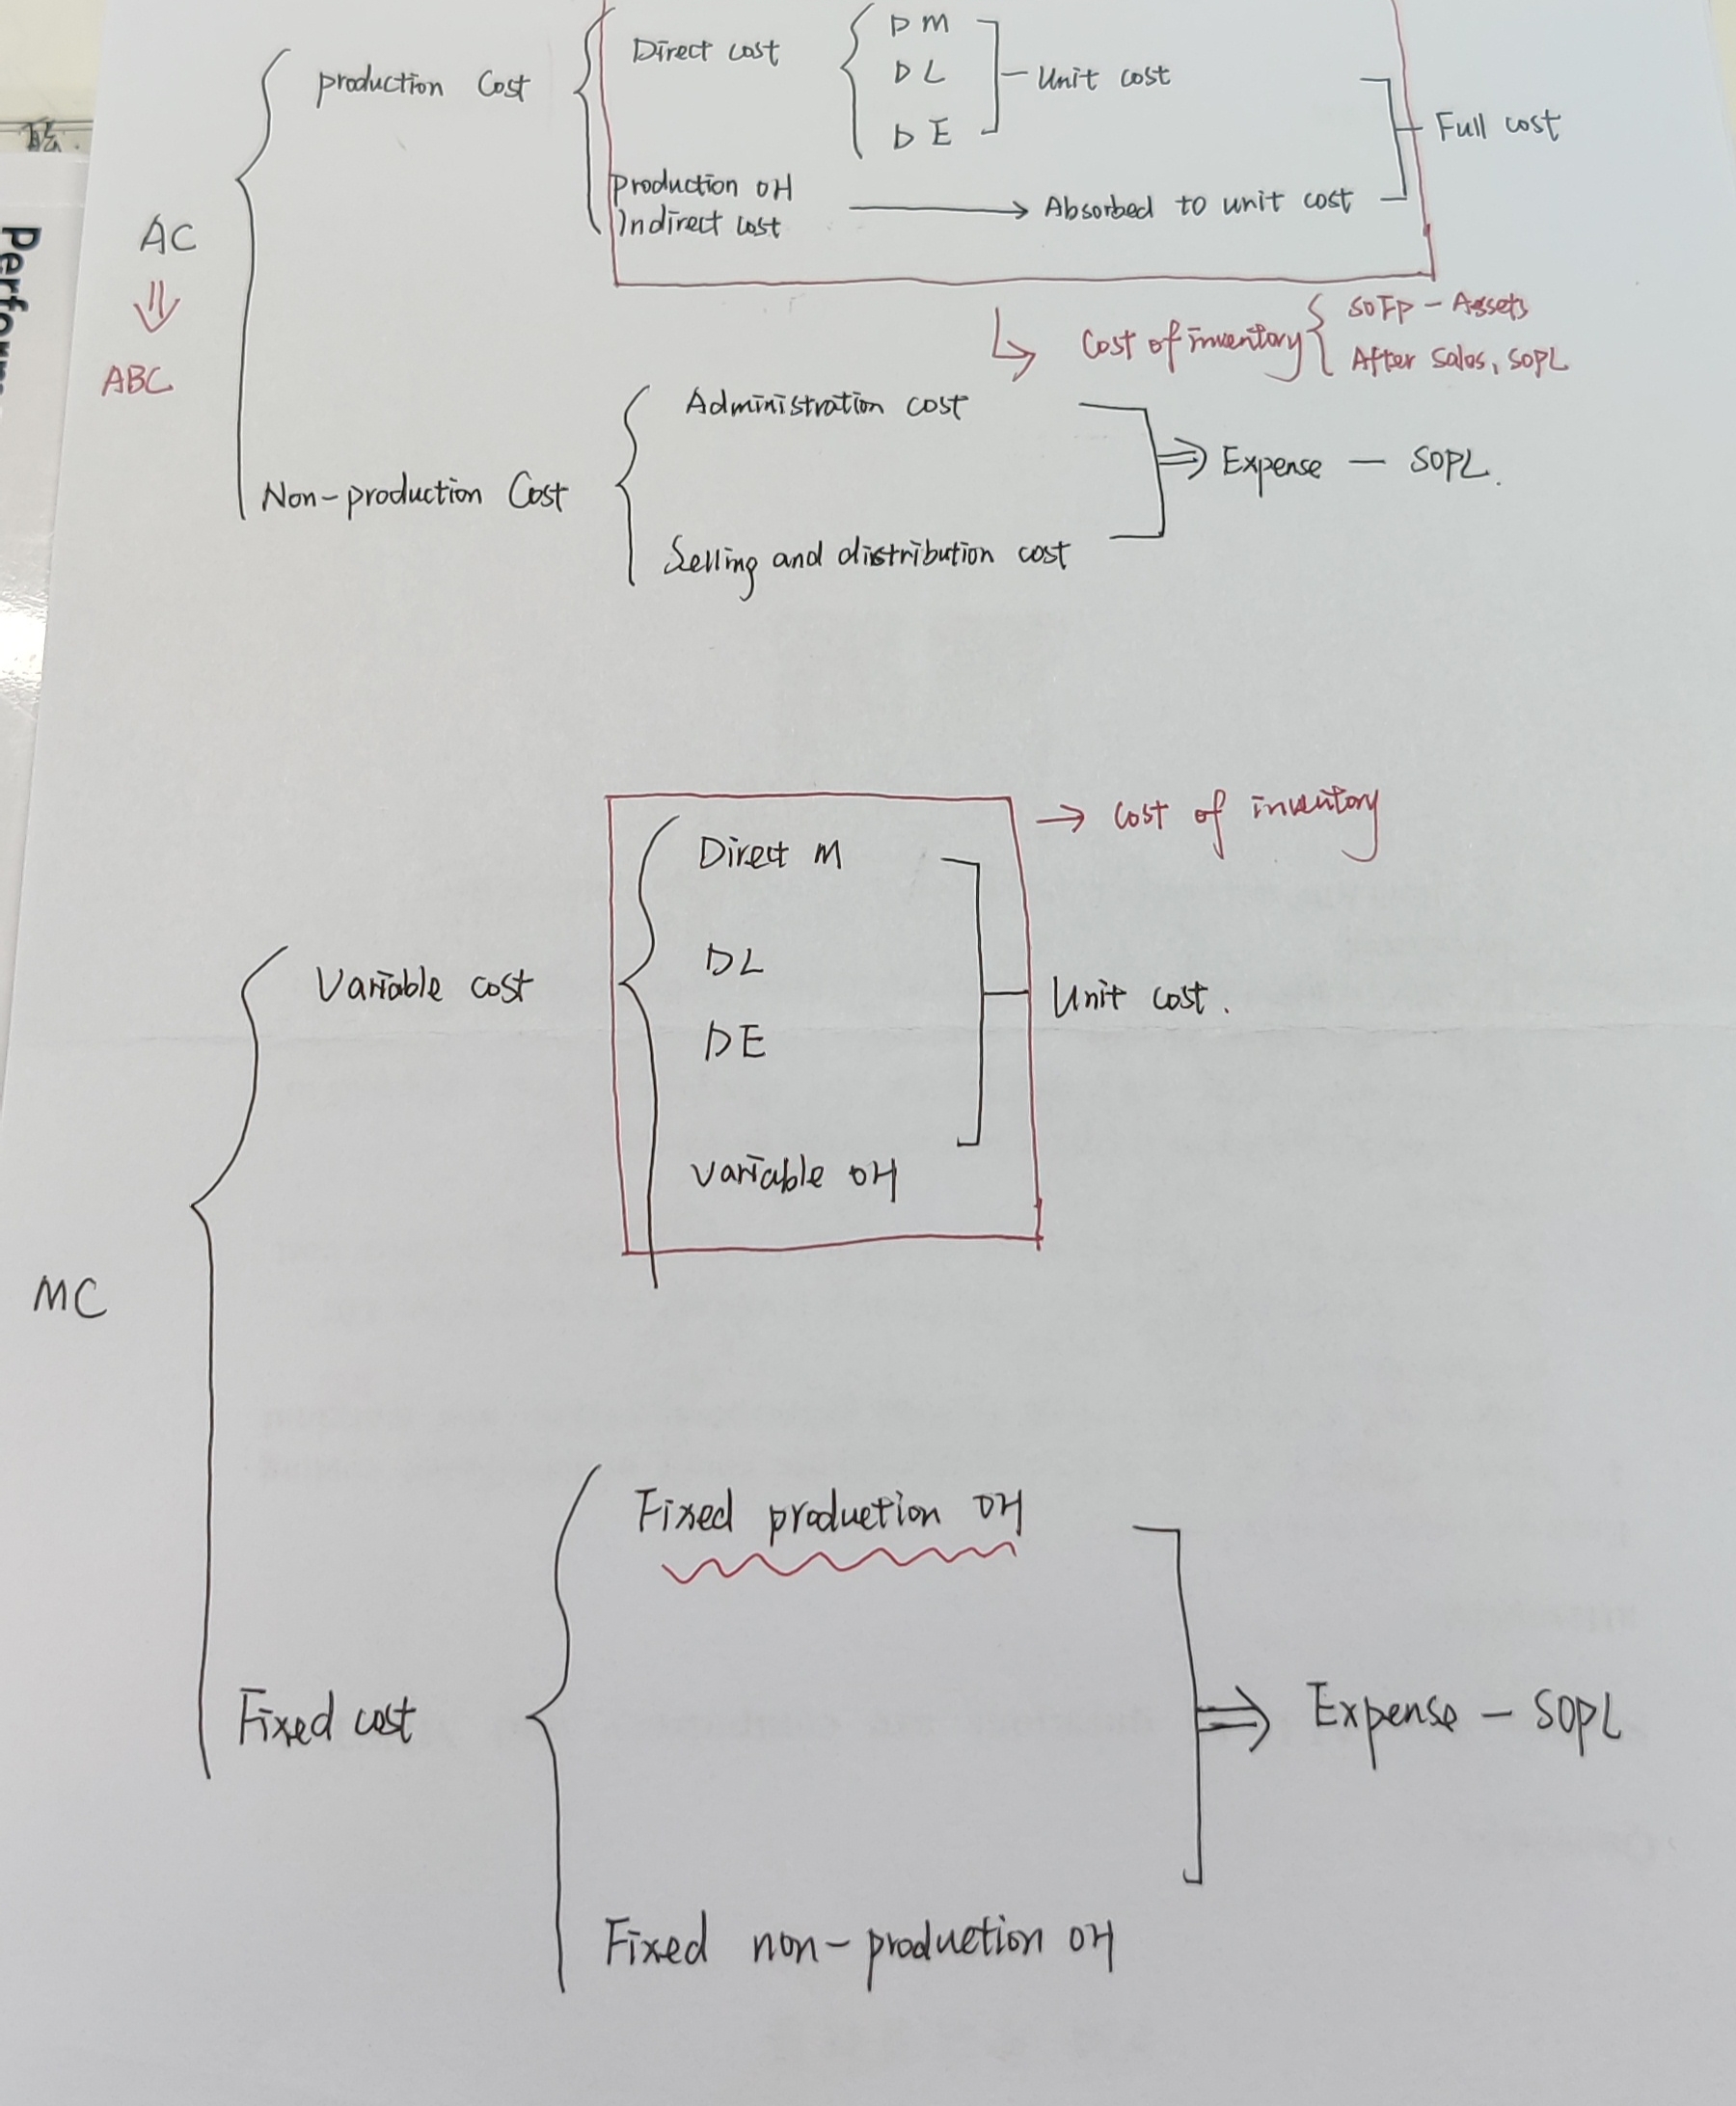 Direct cost
DM
DL
DE
Unit cost
production Cost
Full cost
production OH
Indirect cost
Absorbed to unit cost
AC
ABC
Cost of inventory
SOFP - Assets
After sales, SOPL
Administration cost
Expense - SOPL.
Non-production Cost
Selling and distribution cost
→ Cost of inventory
Direct M
DL
DE
Variable OH
Variable cost
Unit cost.
MC
Fixed production OH
Fixed cost
Expense - SOPL
Fixed non-production OH